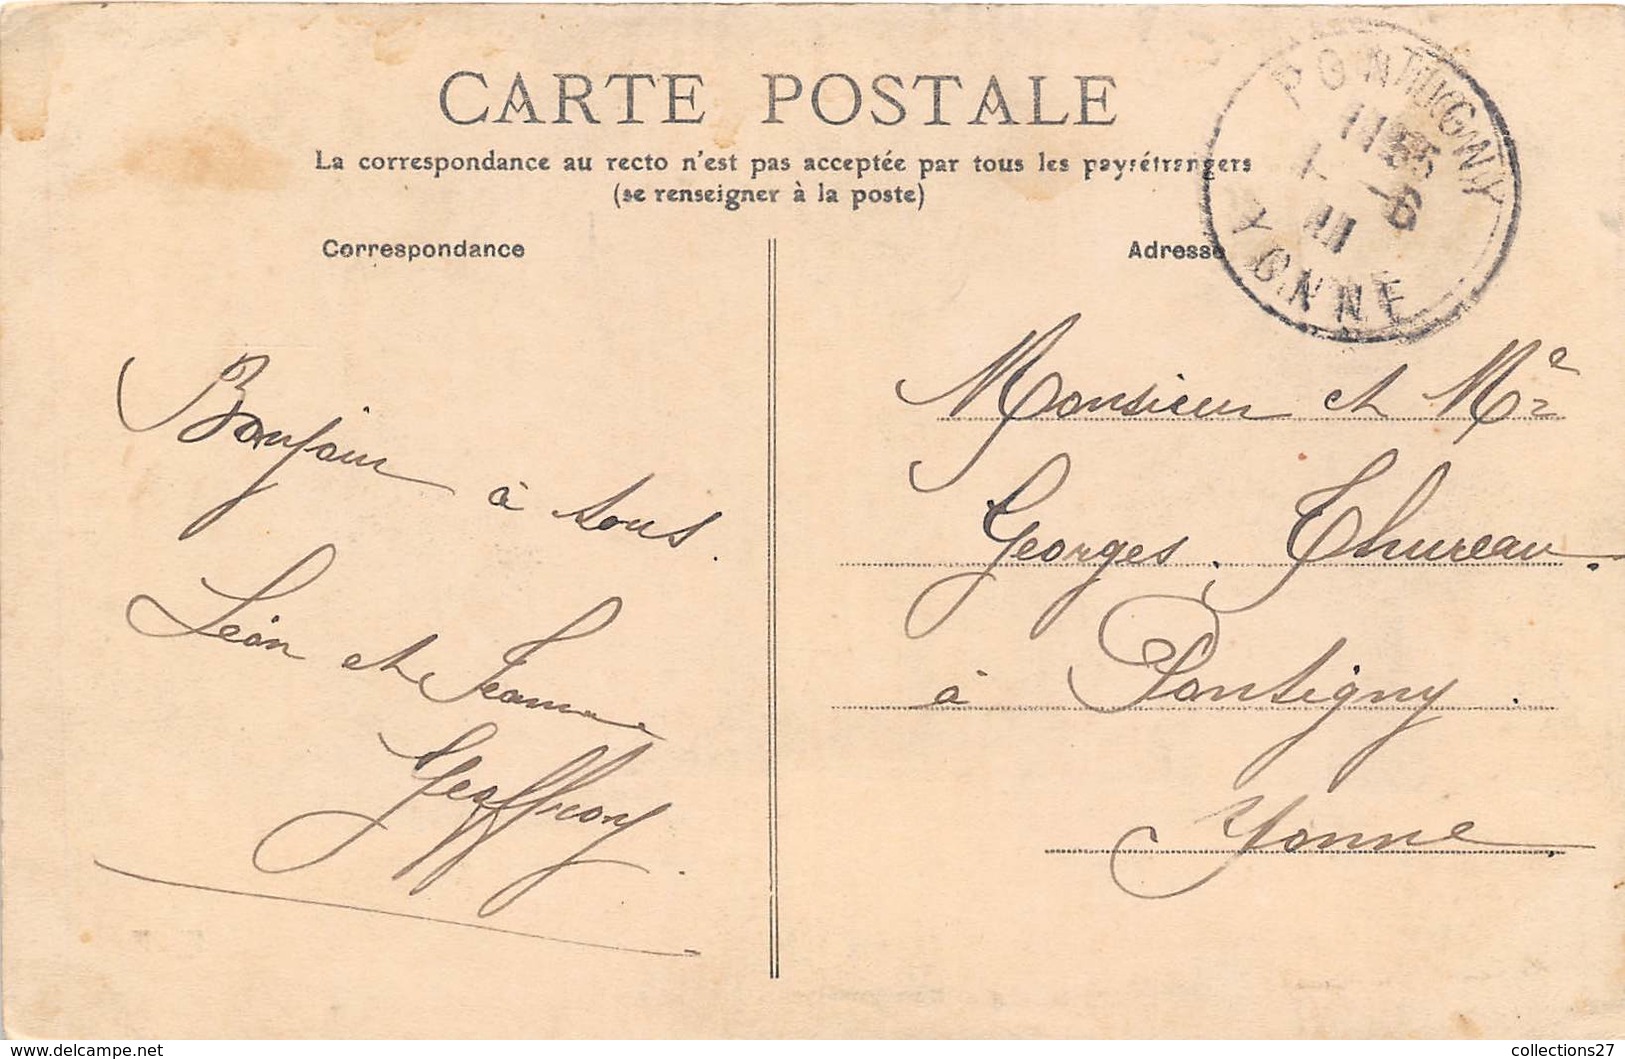 CARTE POSTALE
La correspondance au recto n'est pas acceptée par tous les pays étrangers
(se renseigner à la poste)
PONTIGNY
11 55
1 -6
11
YONNE
Correspondance
Adresse
Bonjour à tous.
Léon et Jeanne
Geoffroy.
Monsieur et Mme
Georges Thureau.
à Pontigny.
Yonne.
collections27